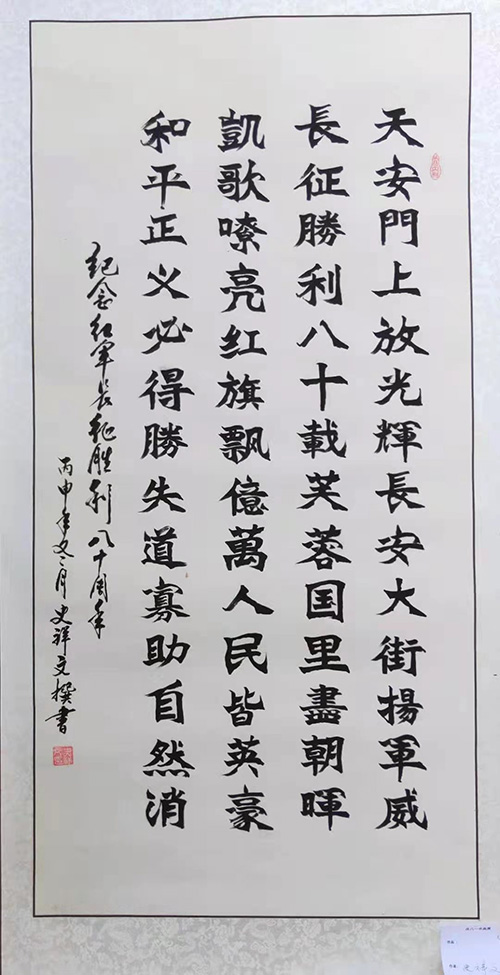 天安門上放光輝長安大街揚軍威
長征勝利八十載芙蓉国里盡朝暉
凱歌嘹亮红旗飘億萬人民皆英豪
和平正义必得勝失道寡助自然消
纪念红军长征胜利八十周年
丙申年又二月史祥文撰書